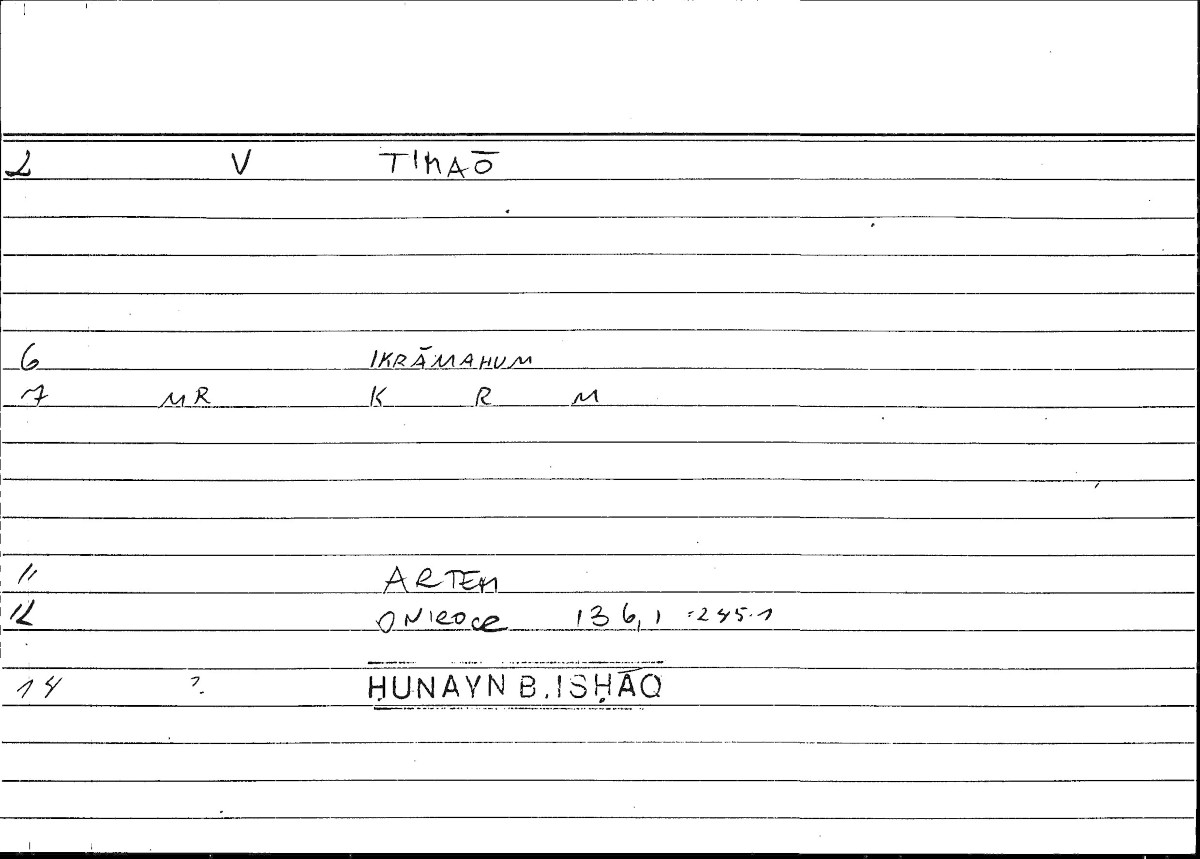 2 V TIMAŌ
6 IKRĀMAHUM
7 MR K R M
11 ARTEM
12 ONIROCR 136,1 =245.1
14 ? ḤUNAYN B.ISḤĀQ